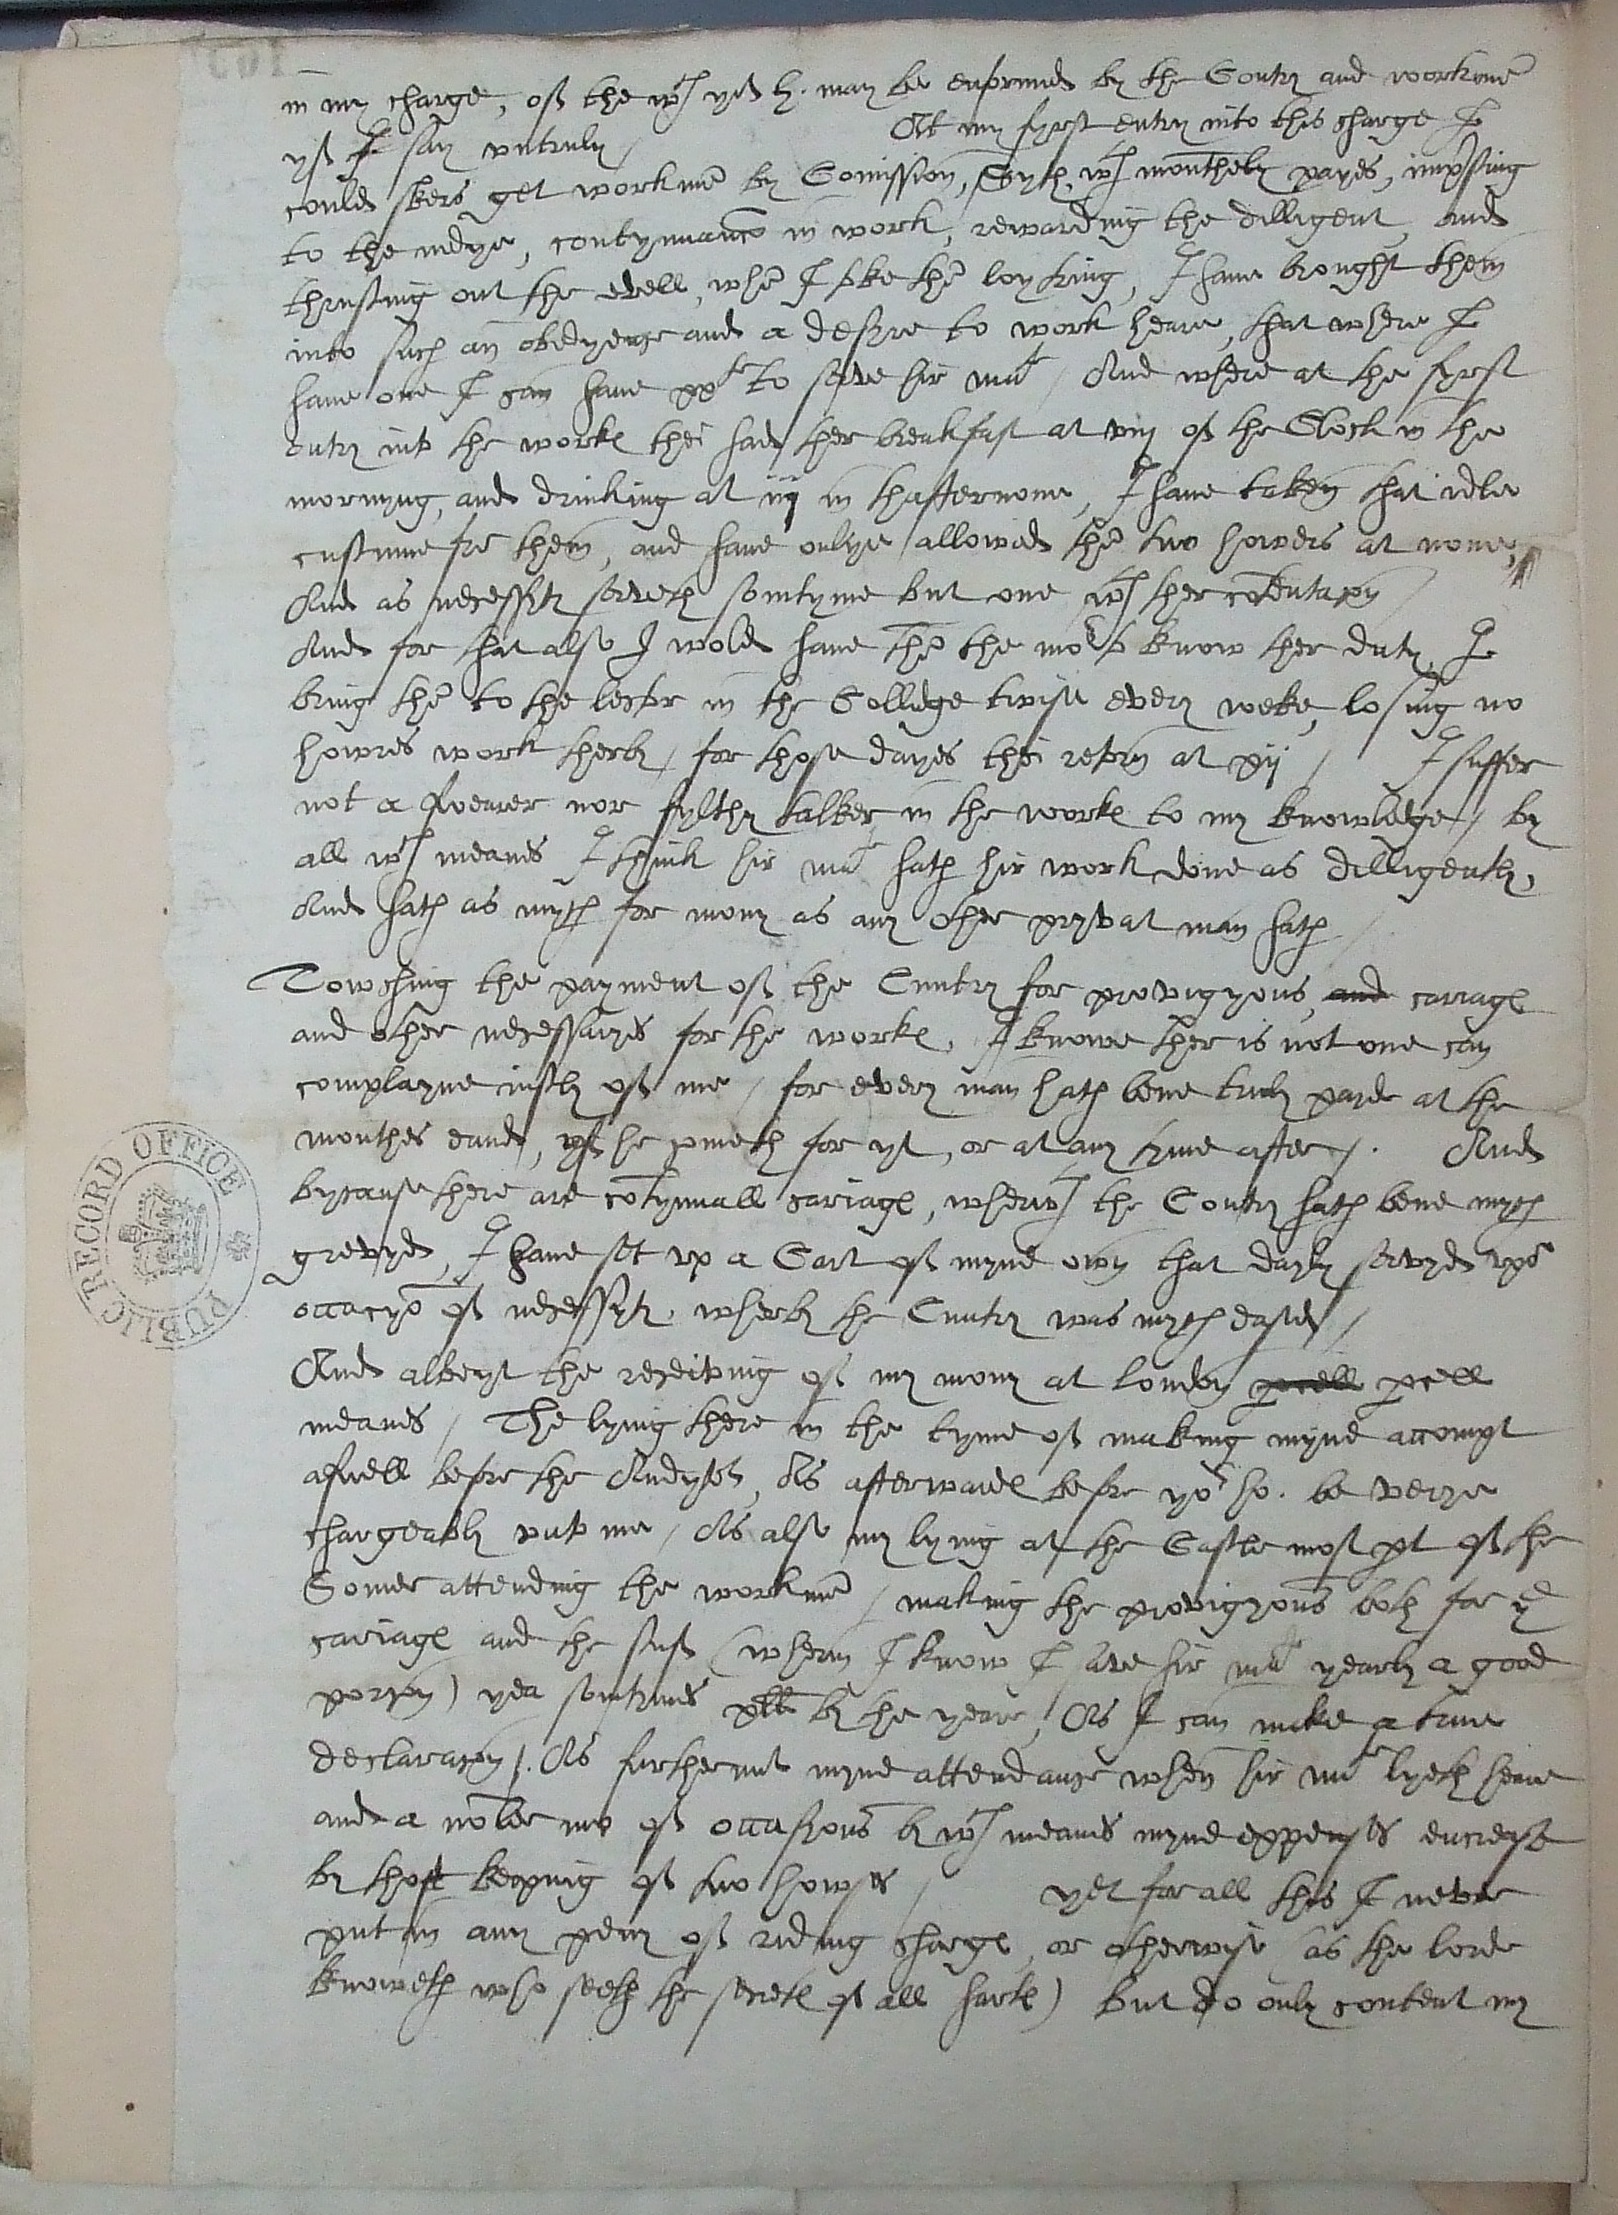 in my charge, of the wch yt h. may be enformed by the Contry and workmē
yf I say vntruly / At my fyrst entry into this charge I
could skers get workmē by Comission, Syth, wth monthely payes, imprsting
to the nedye, contynuance in work, rewarding the dilligent, and
thrusting out the evell, whē I spke thē loytring, I have brought them
into such an obedyence and a desyre to work heare, that where I
have one I can have xxte to serve hir matie / And where at the fyrst
entry into the worke thei had ther breakfast at viij of the Clock in the
mornyng, and drinking at iij in thafternone, I have taken that idle
custume fro them, and have onlye allowed thē two howers at none,
And as necessyty serveth somtyme but one wth ther cōtentacyon
And for that also I wold have thē the more to know ther duty, I
bring thē to the lector in the Colledge twise every weke, losing no
howres work therby, for those dayes thei retorn at xij / I suffer
not a swearer nor fylthy talker in the worke to my knowledge, by
all wch meanes I think hir matie hath hir work done as dilligently,
And hath as mych for mony as any other pryvat man hath /
Towching the payment of the Cuntry for provigyons, and cariage
and other necessaryes for the worke, I knowe ther is not one can
complayne iustly of me, for every man hath bene truly payde at the
monthes eand, yf he cometh for yt, or at any tyme after /. And
bycause there are cōtynuall cariage, wherwth the Contry hath bene mych
grevyd, I have set vp a Cart of myne own that dayly servyd vpō
occacyō of necessyty, wherby the Cuntry was mych eased /
And albeyt the receiving of my mony at London pcell pcell
meanes, The lying there in the tyme of making myne accompt
aswell before the Audytor, As afterwarde before yor ho. be verye
chargeably vnto me, As also my lying at the Castle most pt of the
Somer attending the workmē, making the provigyons both for ye
cariage and the stuf (wherin I know I save hir matie yearly a good
porcyon) yea somtymes xlli by the yeare, As I can make a true
declaracyon /. As furthermor myne attendance when hir matie lyeth heare
and a nōber mo of occasyons by wch meanes myne expenses encrease
by thoft keeping of two howses / yet for all this I never
put in any peny of riding charge, or otherwise (as the lorde
knoweth who seeth the secrete of all harte) but do only content my
PUBLIC RECORD OFFICE